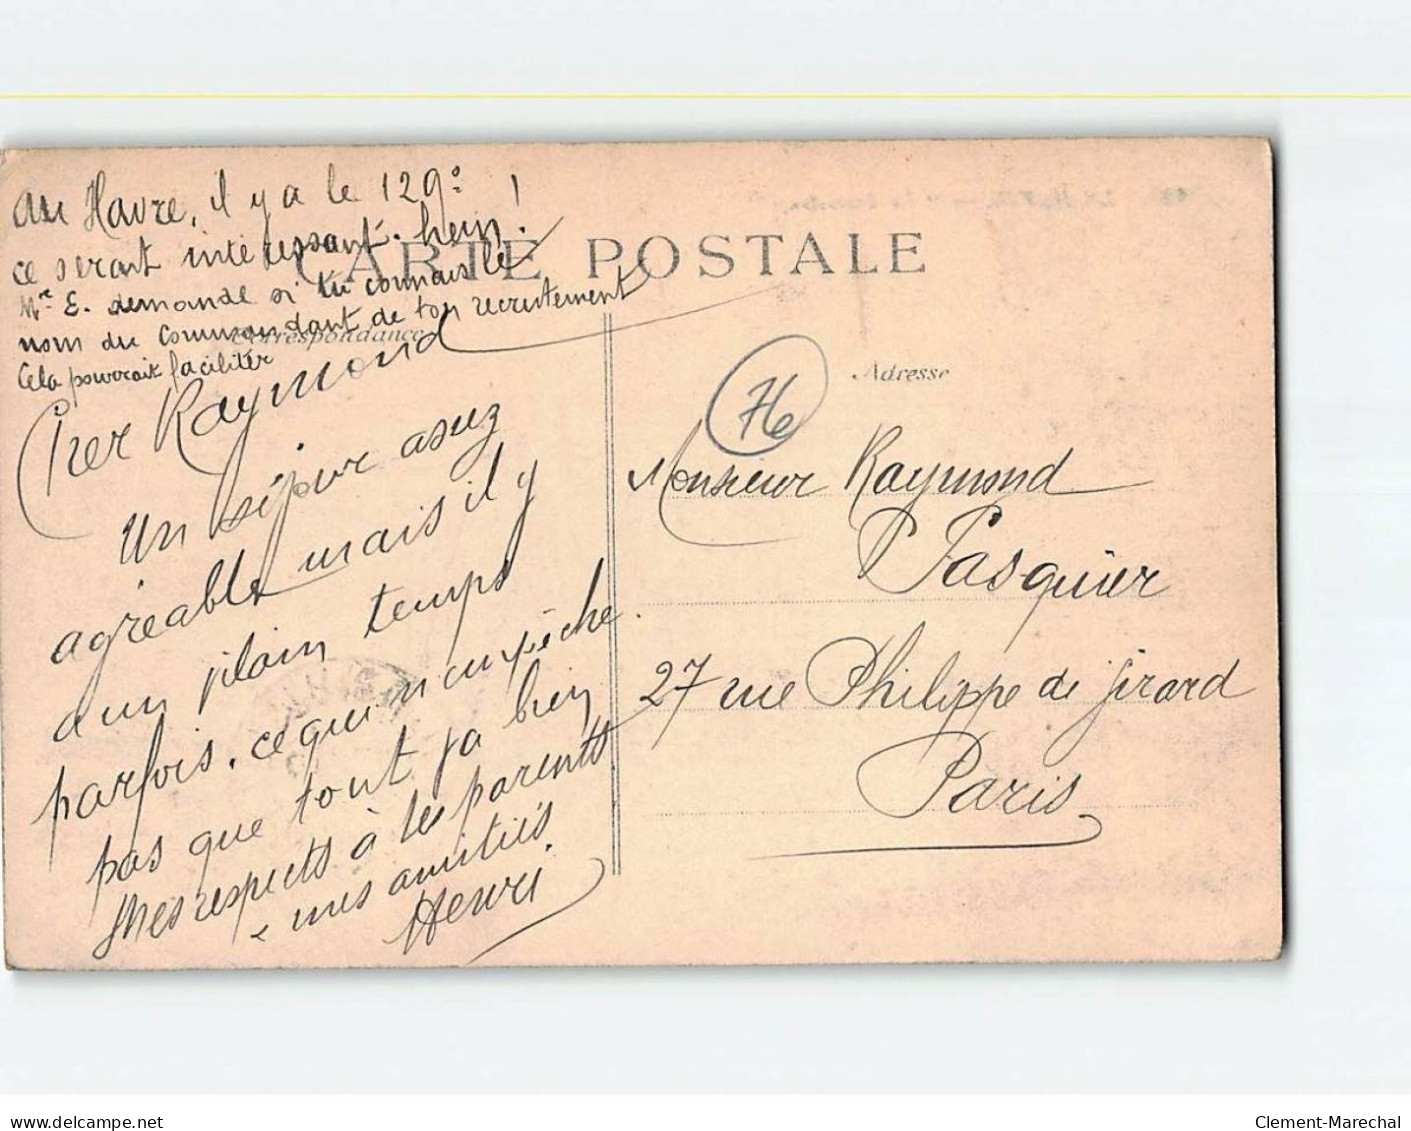 au Havre, il y a le 129e !
ce serait intéressant. hein !
Mr E. demande si tu connais le
nom du commandant de ton recrutement
Cela pourrait faciliter
CARTE POSTALE
Correspondance
Adresse
76
Cher Raymond
Un séjour assez
agréable mais il y
a un vilain temps
parfois. ce qui n'empêche
pas que tout va bien
Mes respects à tes parents
& mes amitiés
Henri
Monsieur Raymond
Pasquier
27 rue Philippe de Girard
Paris
delcampe.net
Clement-Marechal